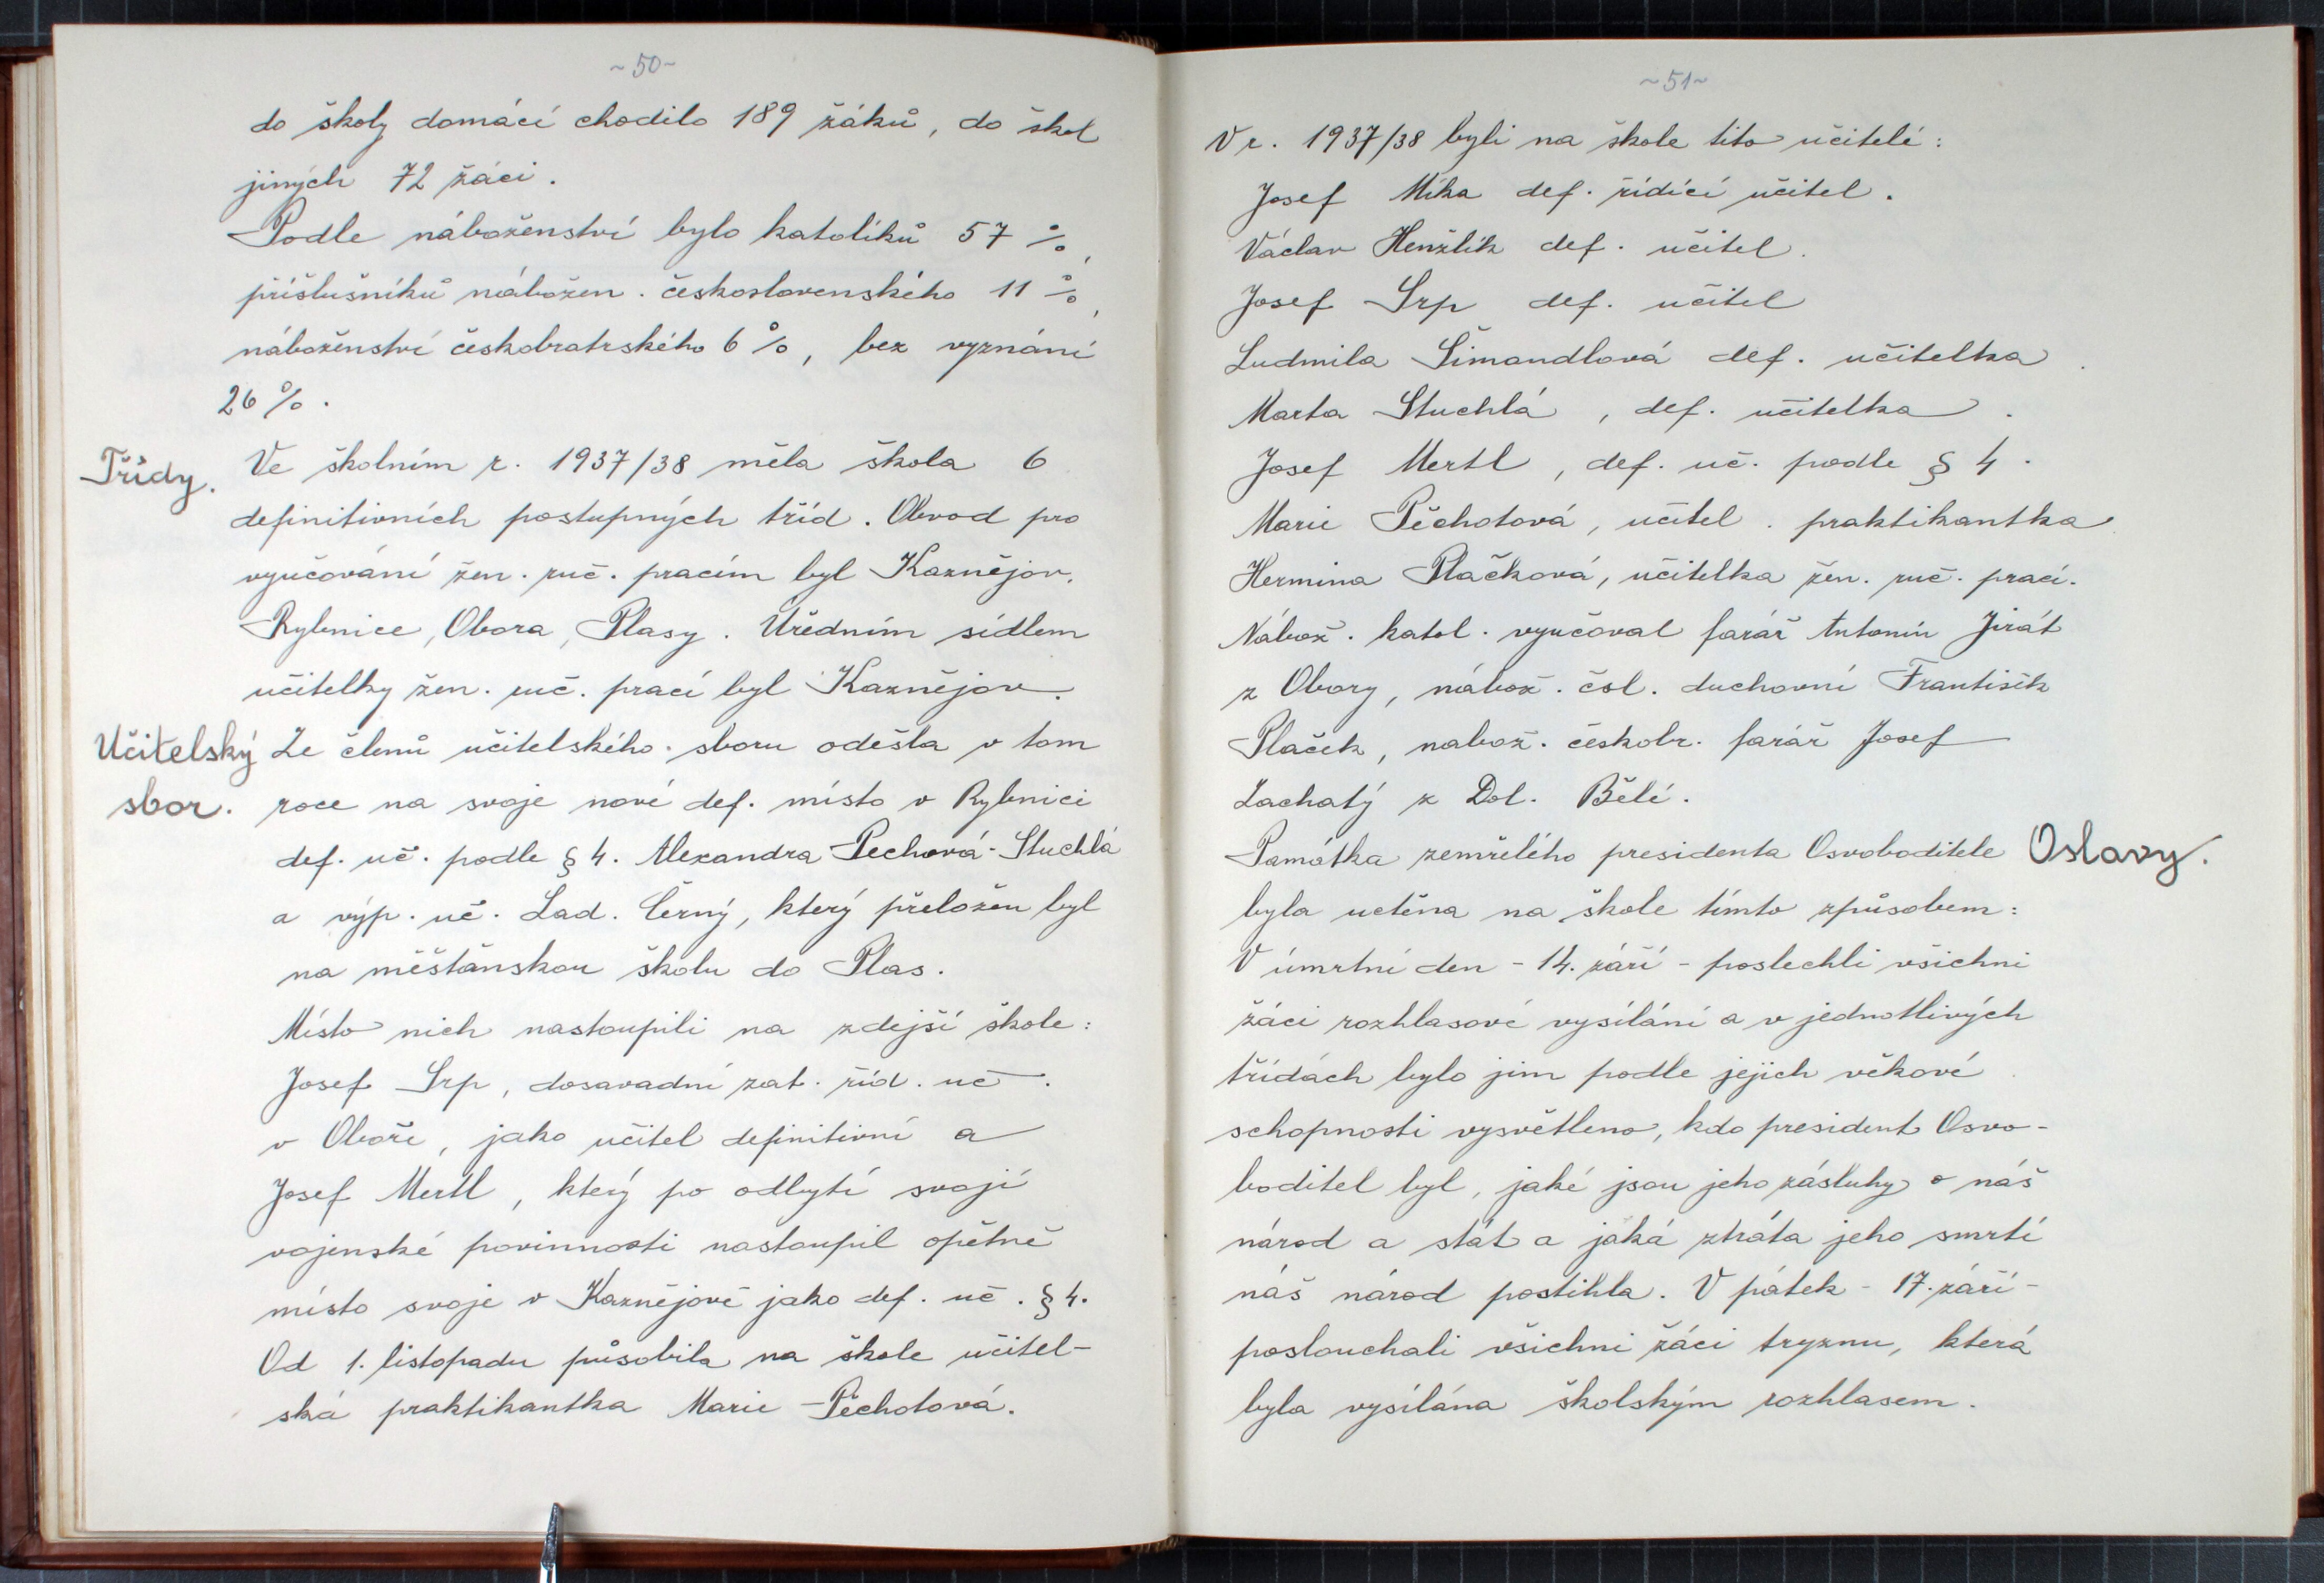 ~50~
do školy domácí chodilo 189 žáků, do škol
jiných 72 žáci.
Podle náboženství bylo katolíků 57 %,
příslušníků nábožen. československého 11 %,
náboženství českobratrského 6 %, bez vyznání
26 %.
Třídy.
Ve školním r. 1937/38 měla škola 6
definitivních postupných tříd. Obvod pro
vyučování žen. ruč. pracím byl Kaznějov,
Rybnice, Obora, Plasy. Úředním sídlem
učitelky žen. ruč. prací byl Kaznějov.
Učitelský
sbor.
Ze členů učitelského sboru odešla v tom
roce na svoje nové def. místo v Rybnici
def. uč. podle § 4. Alexandra Pechová-Stuchlá
a výp. uč. Lad. Černý, který přeložen byl
na měšťanskou školu do Plas.
Místo nich nastoupili na zdejší škole:
Josef Srp, dosavadní zat. říd. uč.
v Oboře, jako učitel definitivní a
Josef Mertl, který po odbytí svojí
vojenské povinnosti nastoupil opětně
místo svoje v Kaznějově jako def. uč. § 4.
Od 1. listopadu působila na škole učitel-
ská praktikantka Marie Pěchotová.
~51~
V r. 1937/38 byli na škole tito učitelé:
Josef Míka def. řídící učitel.
Václav Henžlík def. učitel.
Josef Srp def. učitel
Ludmila Šimandlová def. učitelka.
Marta Stuchlá, def. učitelka.
Josef Mertl, def. uč. podle § 4.
Marie Pěchotová, učitel. praktikantka
Hermina Plačková, učitelka žen. ruč. prací.
Nábož. katol. vyučoval farář Antonín Jirát
z Obory, nábož. čsl. duchovní František
Plaček, nabož. českobr. farář Josef
Zachatý z Dol. Bělé.
Oslavy.
Památka zemřelého presidenta Osvoboditele
byla uctěna na škole tímto způsobem:
V úmrtní den - 14. září - poslechli všichni
žáci rozhlasové vysílání a v jednotlivých
třídách bylo jim podle jejich věkové
schopnosti vysvětleno, kdo president Osvo-
boditel byl, jaké jsou jeho zásluhy o náš
národ a stát a jaká ztráta jeho smrtí
náš národ postihla. V pátek - 17. září -
poslouchali všichni žáci tryznu, která
byla vysílána školským rozhlasem.